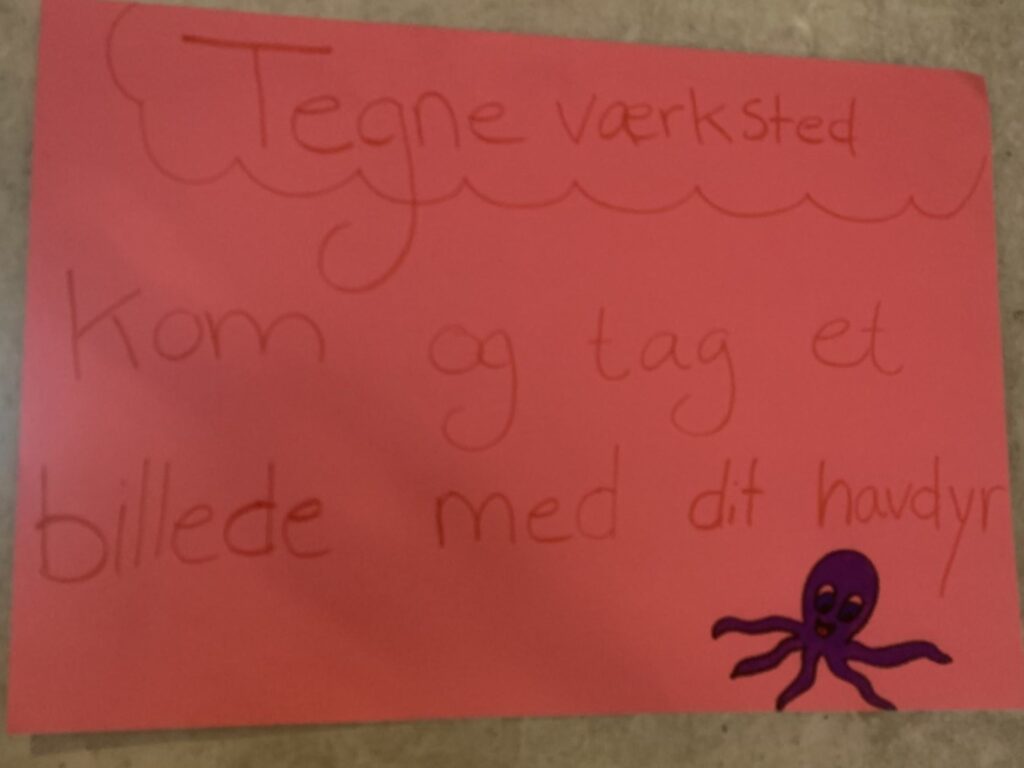 Tegne værksted
Kom og tag et
billede med dit havdyr